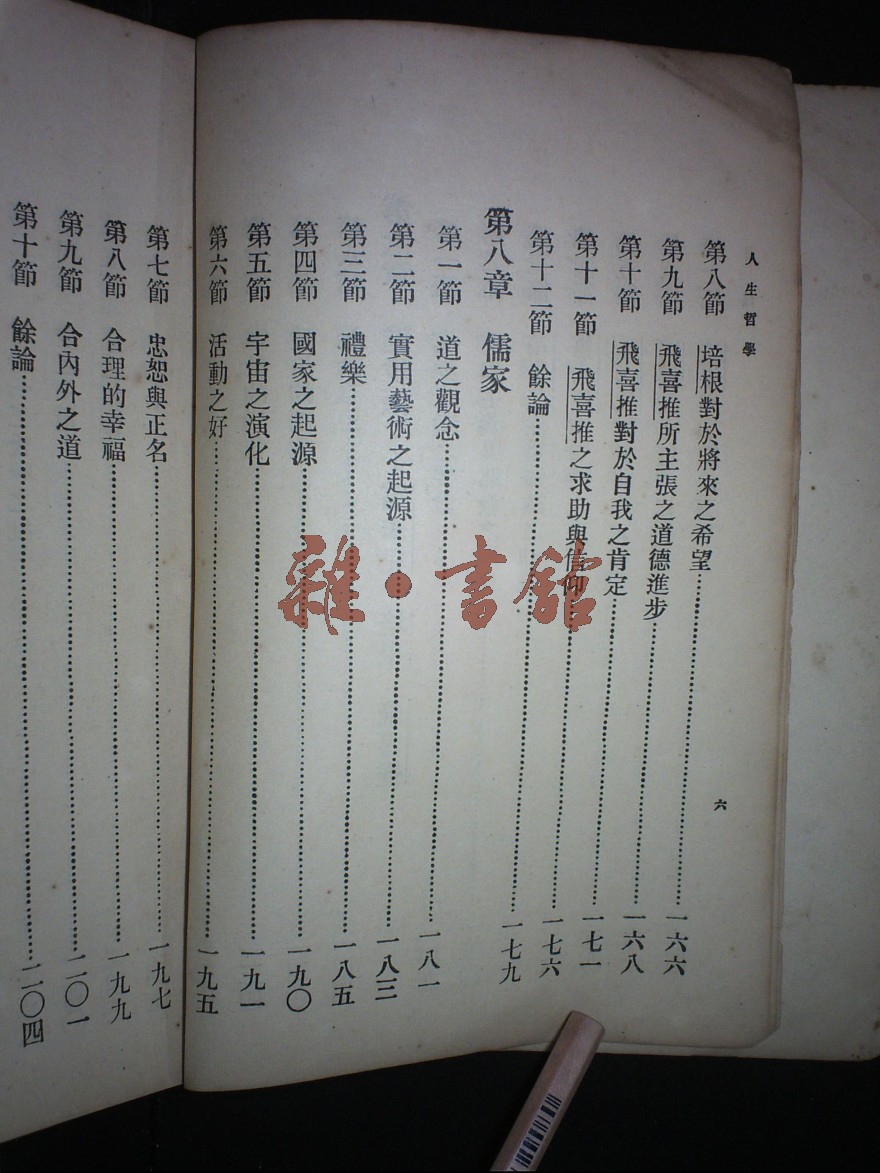 人生哲學
六
第八節 培根對於將來之希望……一六六
第九節 飛喜推所主張之道德進步……一六八
第十節 飛喜推對於自我之肯定……一七一
第十一節 飛喜推之求助與信仰……一七六
第十二節 餘論……一七九
第八章 儒家
第一節 道之觀念……一八一
第二節 實用藝術之起源……一八三
第三節 禮樂……一八五
第四節 國家之起源……一九〇
第五節 宇宙之演化……一九一
第六節 活動之好……一九五
第七節 忠恕與正名……一九七
第八節 合理的幸福……一九九
第九節 合內外之道……二〇一
第十節 餘論……二〇四
雜·書館